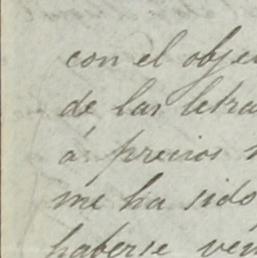 con el obje
de las letra
á precios
me ha sido
haberse ven